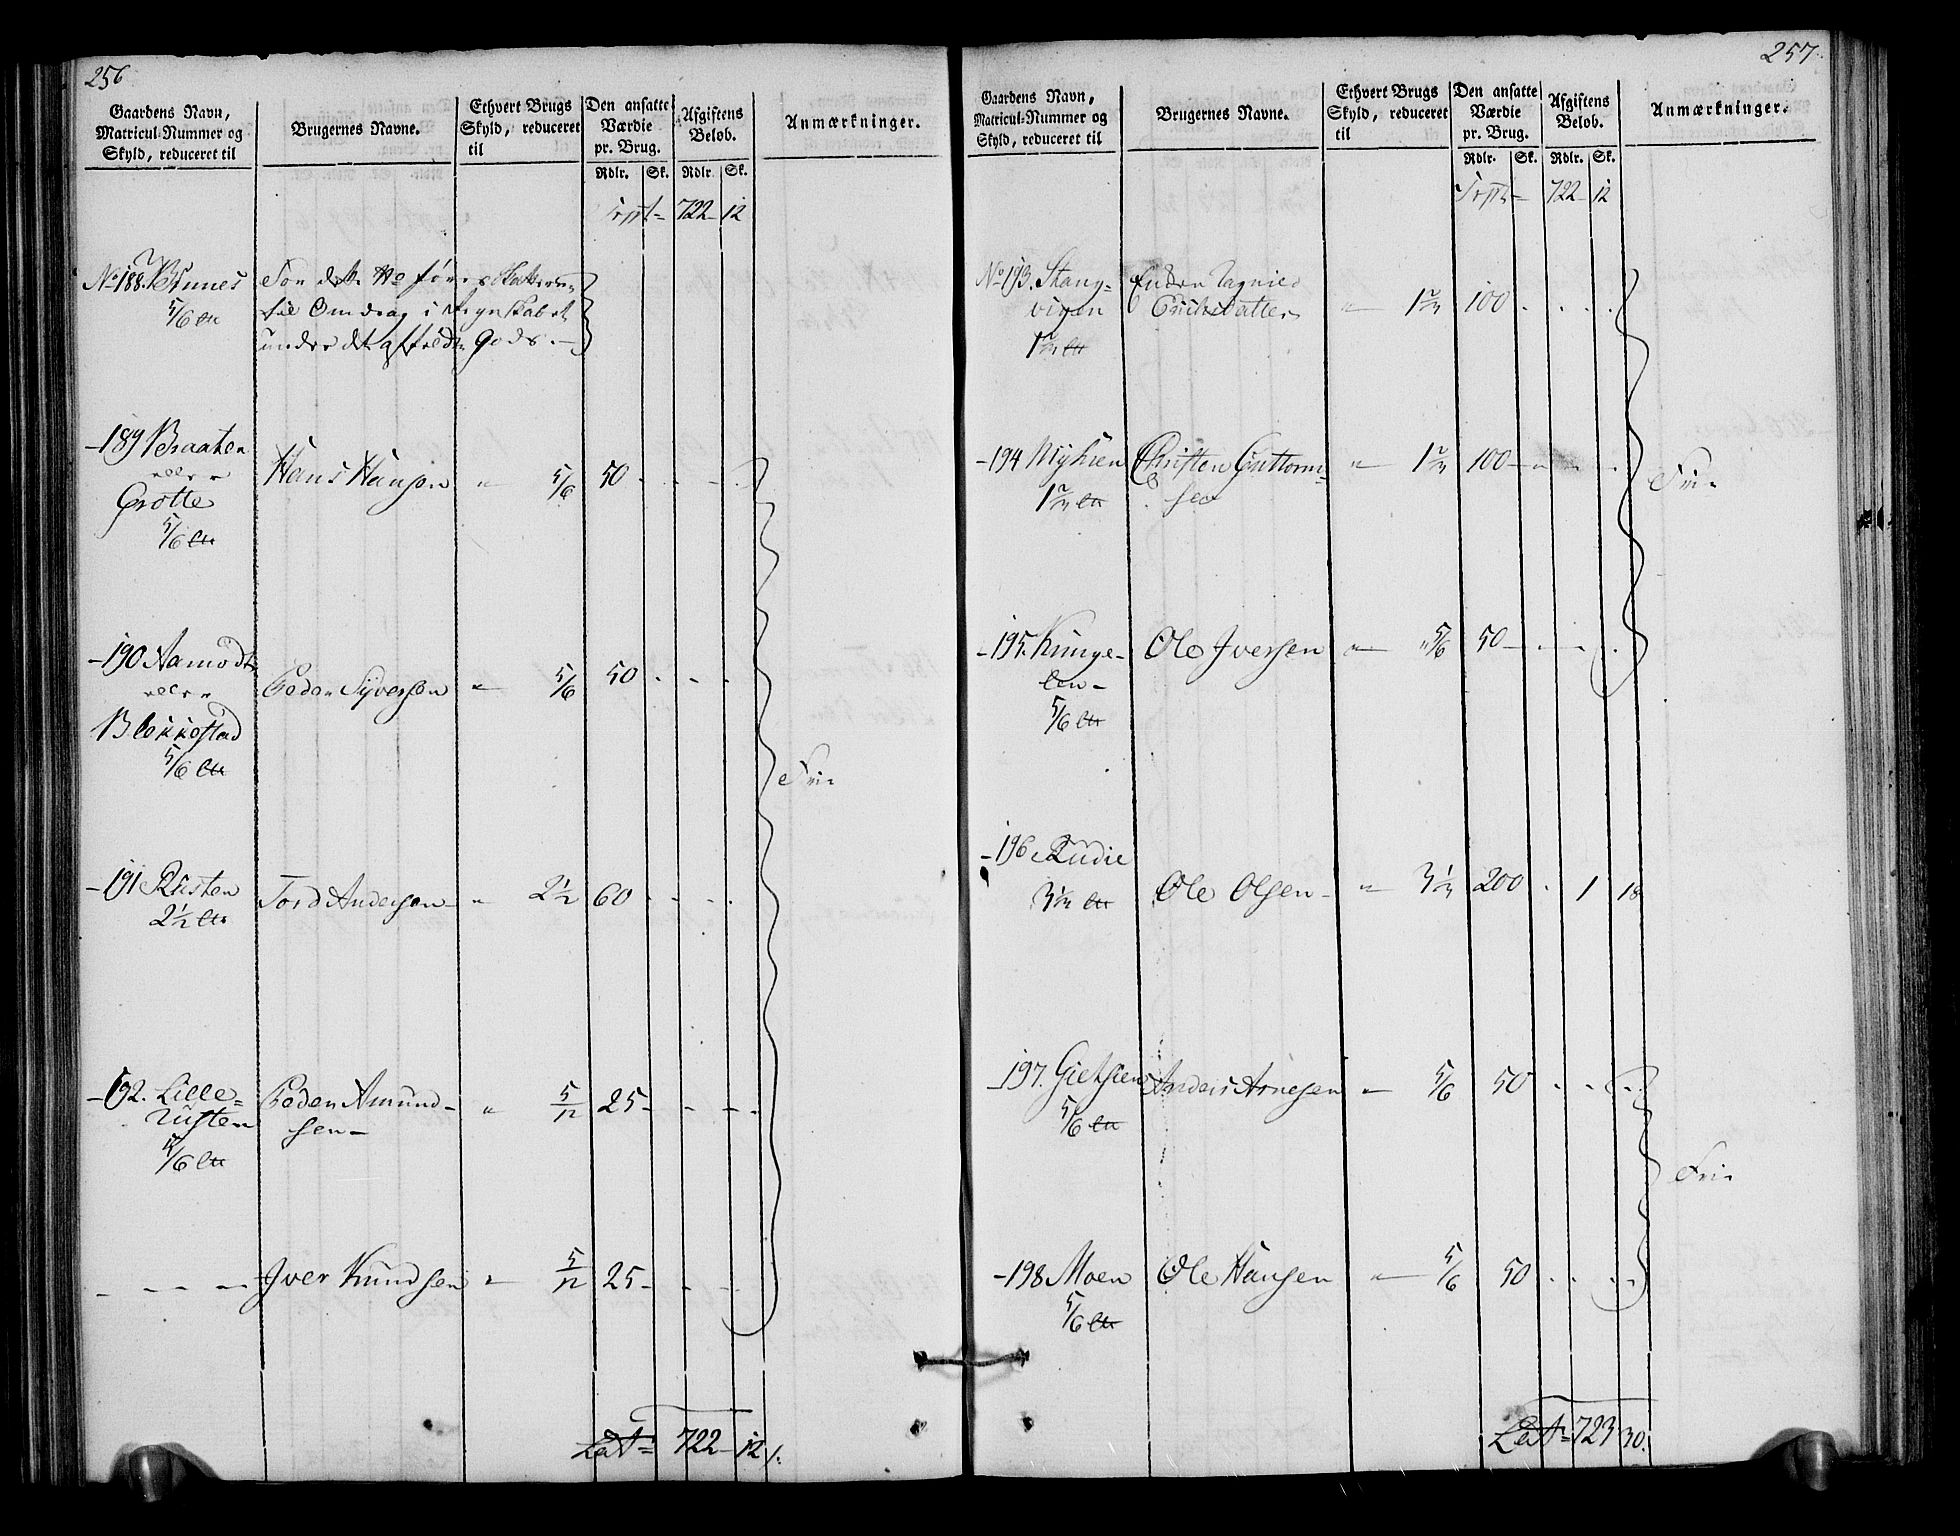 256
Gaardens Navn,
Matricul-Nummer og
Skyld, reduceret til
Brugernes Navne.
Ethvert Brugs
Skyld, reduceret
til
Den ansatte
Værdie
pr. Brug.
Afgiftens
Beløb.
Anmærkninger.
Rdlr. Sk. Rdlr. Sk.
Trspt 722 12
No 188.
5/6
til Omdrag i Regnskabet
under det Gods.
189 Braaten
eller
Grotte
5/6
Hans Hansen " 5/6 50
190 Aamodt
eller
Blekkestad
5/6
Peder Syversen " 5/6 50
Fri
191 Rusten
2 1/2
Tord Andersen " 2 1/2 60
192. Lille
rusten
5/6
Peder Amund-
sen " 5/12 25
Iver Knudsen " 5/12 25
Lat 722 12
257
Gaardens Navn,
Matricul-Nummer og
Skyld, reduceret til
Brugernes Navne.
Ethvert Brugs
Skyld, reduceret
til
Den ansatte
Værdie
pr. Brug.
Afgiftens
Beløb.
Anmærkninger.
Rdlr. Sk. Rdlr. Sk.
Trspt 722 12
No 193. Stang-
vigen
1 2/3
Erichsdatter " 1 2/3 100
194 Myhren
1 2/3
Christen Guttorm-
sen " 1 2/3 100
Fri
195. Kringe-
len
5/6
Ole Iversen " 5/6 50
196 Rudie
3 1/3
Ole Olsen " 3 1/3 200 1 18
197.
5/6
Anders Arnesen " 5/6 50
Fri
198 Moen
5/6
Ole Hansen " 5/6 50
Lat 723 30.